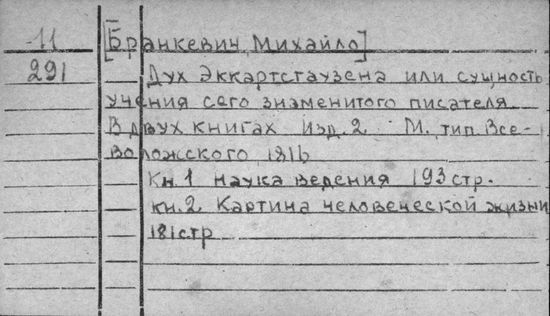 11 [Бранкевич Михайло]
291 Дух Эккартсгаузена или сущность
учения сего знаменитого писателя
В двух книгах Изд. 2 М. тип. Все-
воложского 1816
Кн. 1 наука ведения 193 стр.
кн. 2 Картина человеческой жизни
181 стр